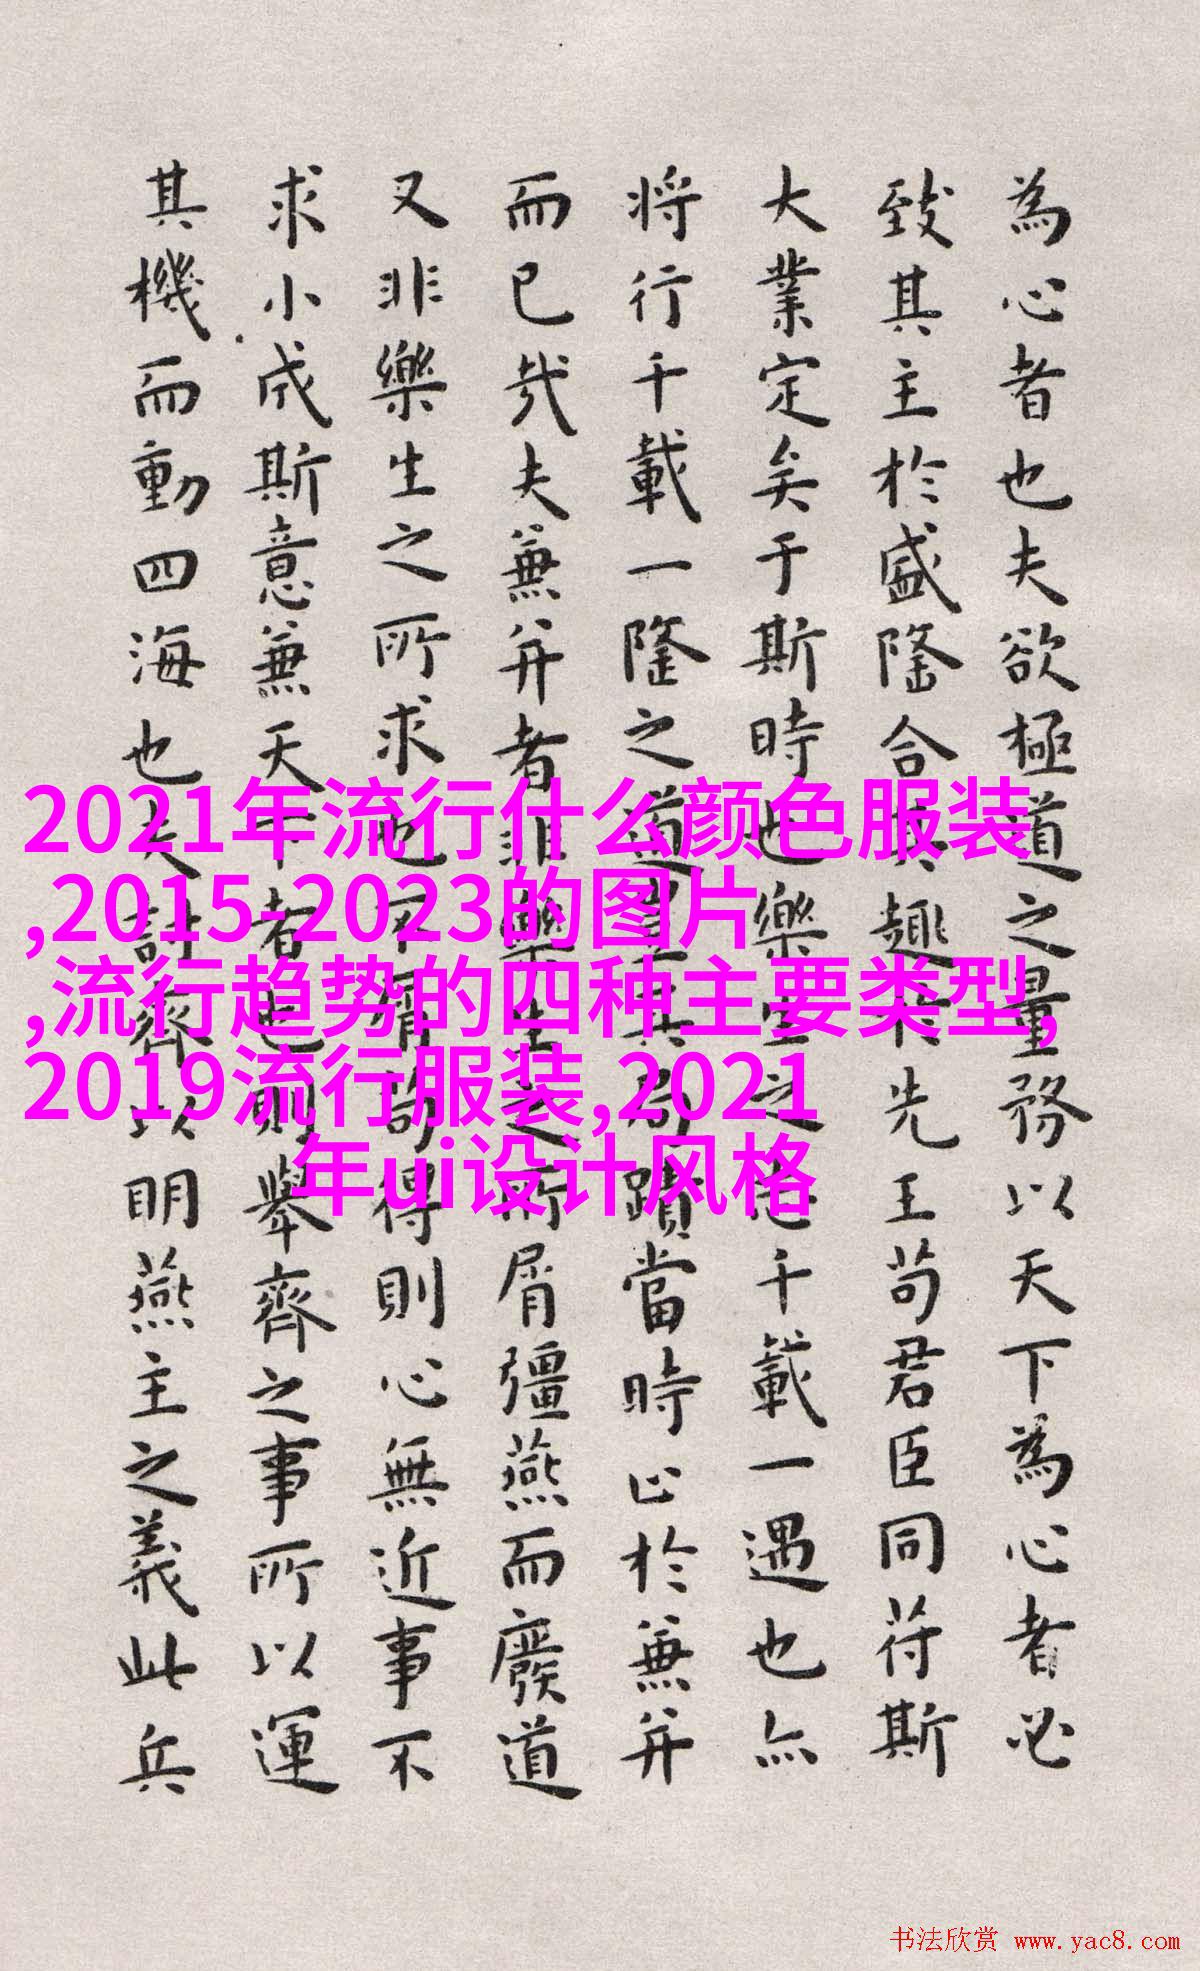 為心者也夫欲極道之量務以天下為心者必
致其主於盛隆合其趣於先王苟君臣同符斯
大業定矣于斯時也樂生之志千載一遇也亦
將行千載一隆之道豈其局蹟當時止於兼并
而已哉夫兼并者非樂生之所屑彊燕而廢道
又非樂生之所求也不屑苟得則心無近事不
求小成斯意兼天下者也則舉齊之事所以運
其機而動四海也夫討齊以明燕主之義此兵
2021年流行什么颜色服装
,2015-2023的图片
,流行趋势的四种主要类型,
2019流行服装,2021
年ui设计风格
书法欣赏 www.yac8.com